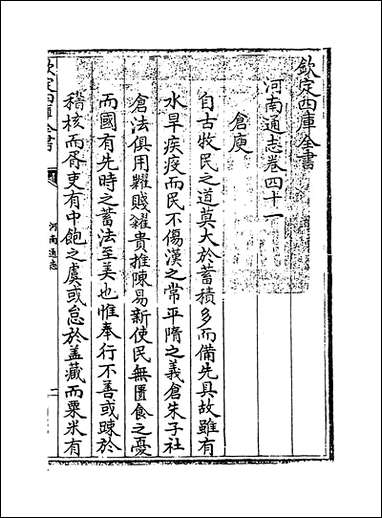 欽定四庫全書
河南通志卷四十一
倉庾
自古牧民之道莫大於蓄積多而備先具故雖有
水旱疾疫而民不傷漢之常平隋之義倉朱子社
倉法俱用糴賤糶貴推陳易新使民無匱食之憂
而國有先時之蓄法至美也惟奉行不善或踈於
稽核而胥吏有中飽之虞或怠於葢藏而粟米有
欽定四庫全書
河南通志